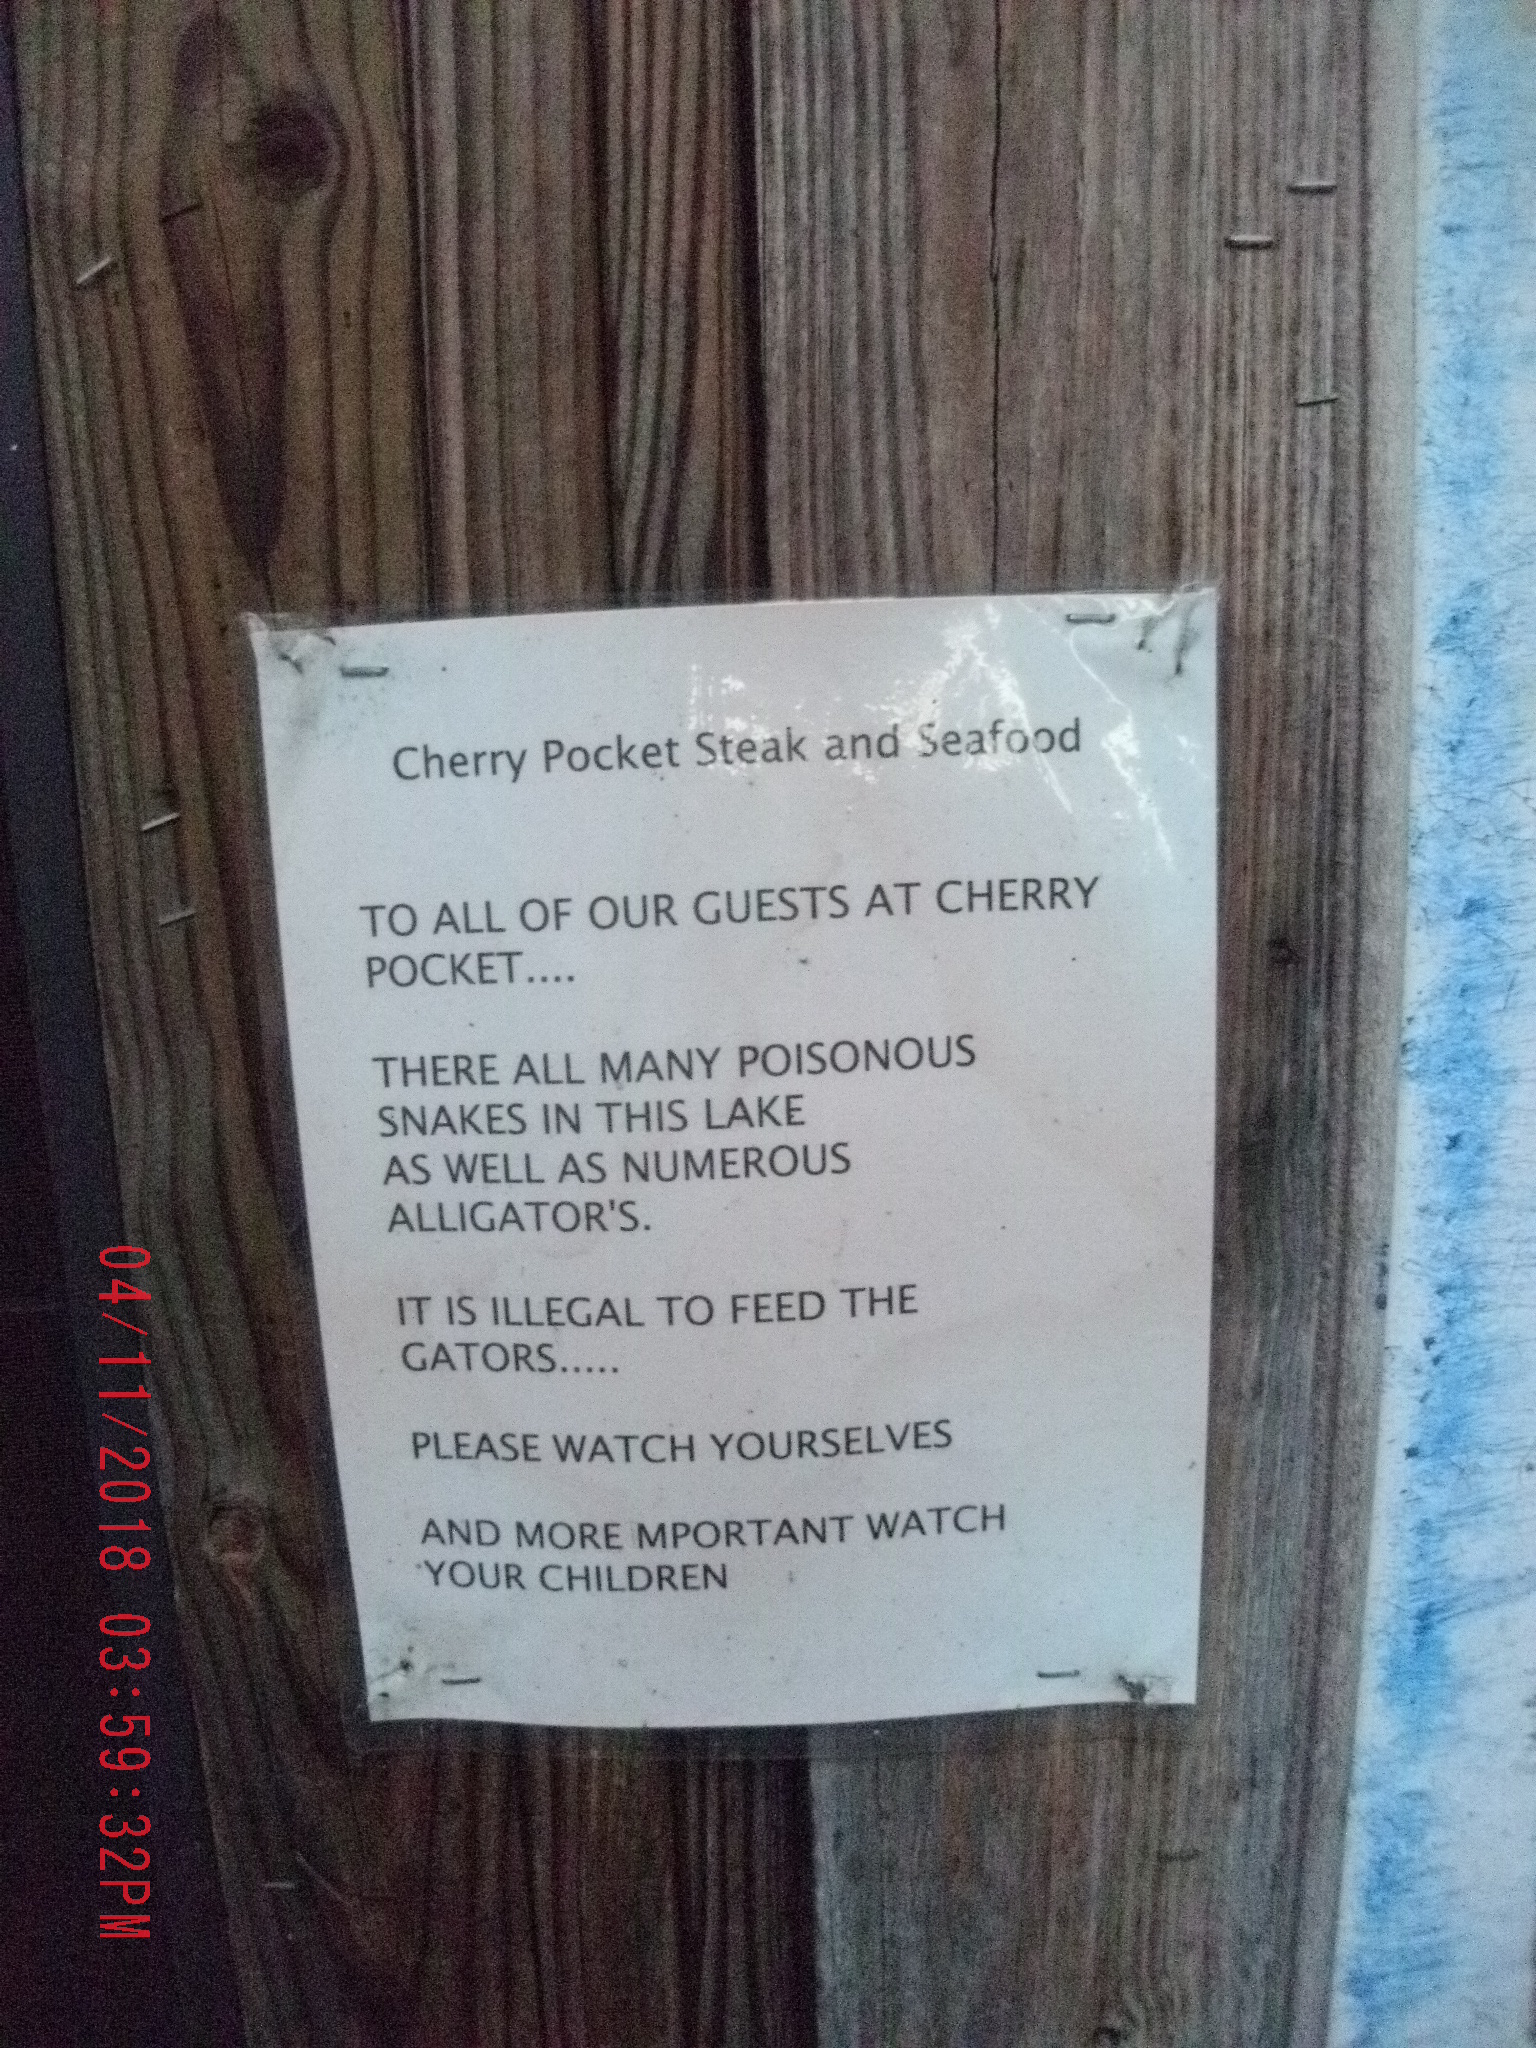 Cherry Pocket Steak and Seafood
TO ALL OF OUR GUESTS AT CHERRY
POCKET....
THERE ALL MANY POISONOUS
SNAKES IN THIS LAKE
AS WELL AS NUMEROUS
ALLIGATOR'S.
IT IS ILLEGAL TO FEED THE
GATORS.....
PLEASE WATCH YOURSELVES
AND MORE MPORTANT WATCH
YOUR CHILDREN
04/11/2018 03:59:32PM